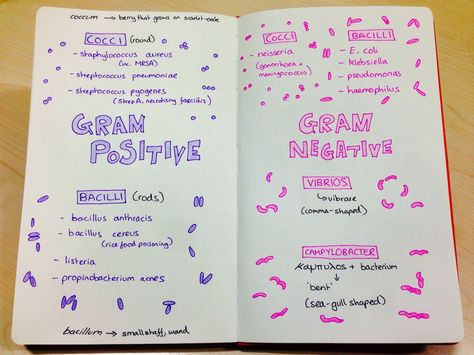 coccum → berry that grows on scarlet-oak
COCCI (round)
- staphylococcus aureus
(inc MRSA)
- streptococcus pneumoniae
- streptococcus pyogenes
(Strep A, necrotising fasciitis)
GRAM
POSITIVE
BACILLI (rods)
- bacillus anthracis
- bacillus cereus
(rice food poisoning)
- listeria
- propinobacterium acnes
bacillum → small staff, wand
COCCI
- neisseria
(gonorrhoea +
meningococcus)
BACILLI
- E. coli
- klebsiella
- pseudomonas
- haemophilus
GRAM
NEGATIVE
VIBRIOS
↳ vibrare
(comma-shaped)
CAMPYLOBACTER
καμπυλος + bacterium
↓
'bent'
(sea-gull shaped)